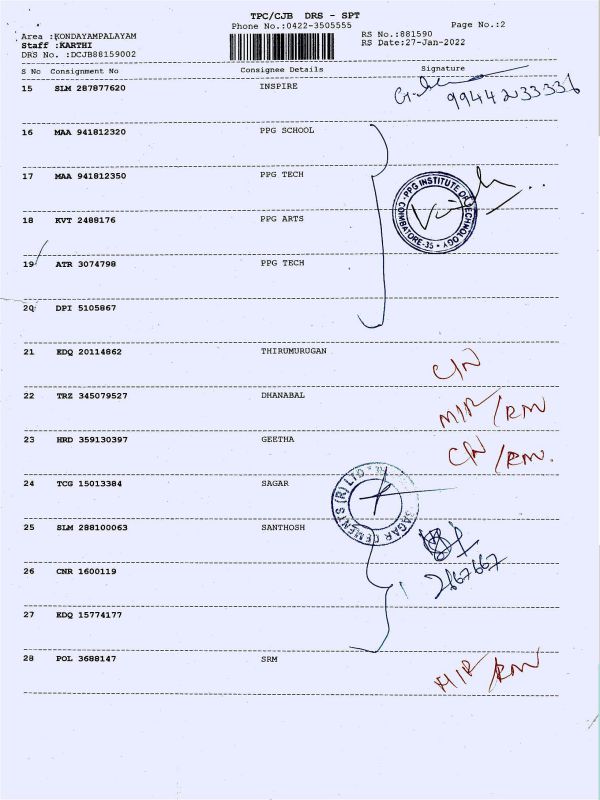 TPC/CJB DRS - SPT
Phone No.:0422-3505555
Page No.:2
Area :KONDAYAMPALAYAM
RS No.:881590
Staff :KARTHI
RS Date:27-Jan-2022
DRS No. :DCJB88159002
S No Consignment No Consignee Details Signature
15 SLM 287877620 INSPIRE
16 MAA 941812320 PPG SCHOOL
17 MAA 941812350 PPG TECH
PPG INSTITUTE OF TECHNOLOGY
COIMBATORE-35
18 KVT 2488176 PPG ARTS
19 ATR 3074798 PPG TECH
20 DPI 5105867
21 EDQ 20114862 THIRUMURUGAN C/N
22 TRZ 345079527 DHANABAL M/R/RN
23 HRD 359130397 GEETHA C/N/RN.
24 TCG 15013384 SAGAR
SAGAR CEMENTS (R) LTD
25 SLM 288100063 SANTHOSH
26 CNR 1600119
2867667
27 EDQ 15774177
28 POL 3688147 SRM